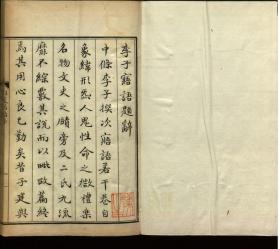 李子寱語題辭
中條李子揆次寱語若干卷自
象緯形氣人鬼性命之微禮樂
名物文史之賾旁及二氏九流
靡不綜覈其説而以時政篇終
焉其用心良已勤矣昔子建與